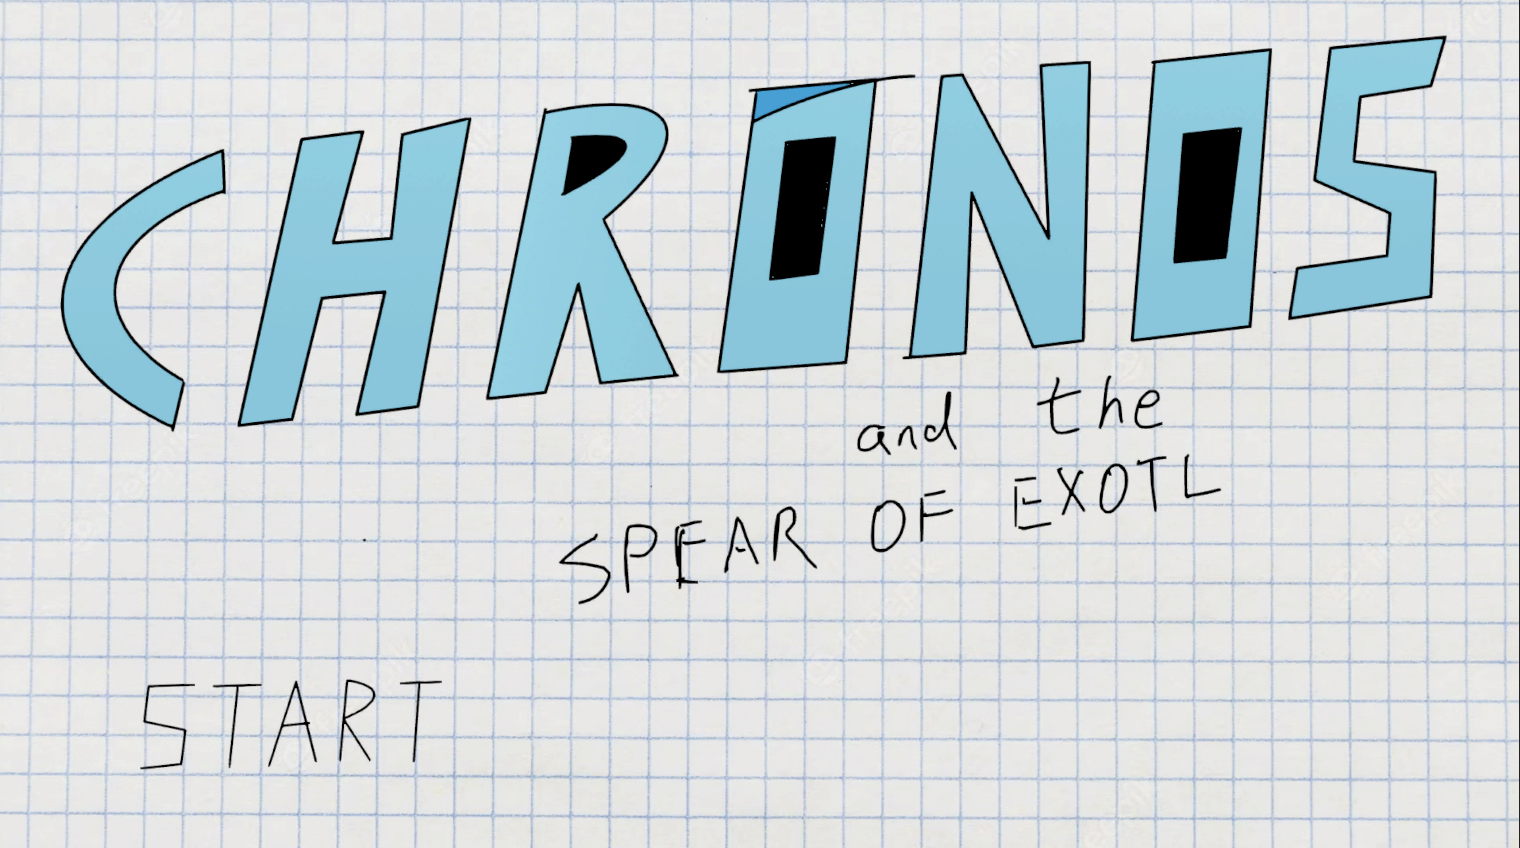 CHRONOS
and the
SPEAR OF EXOTL
START